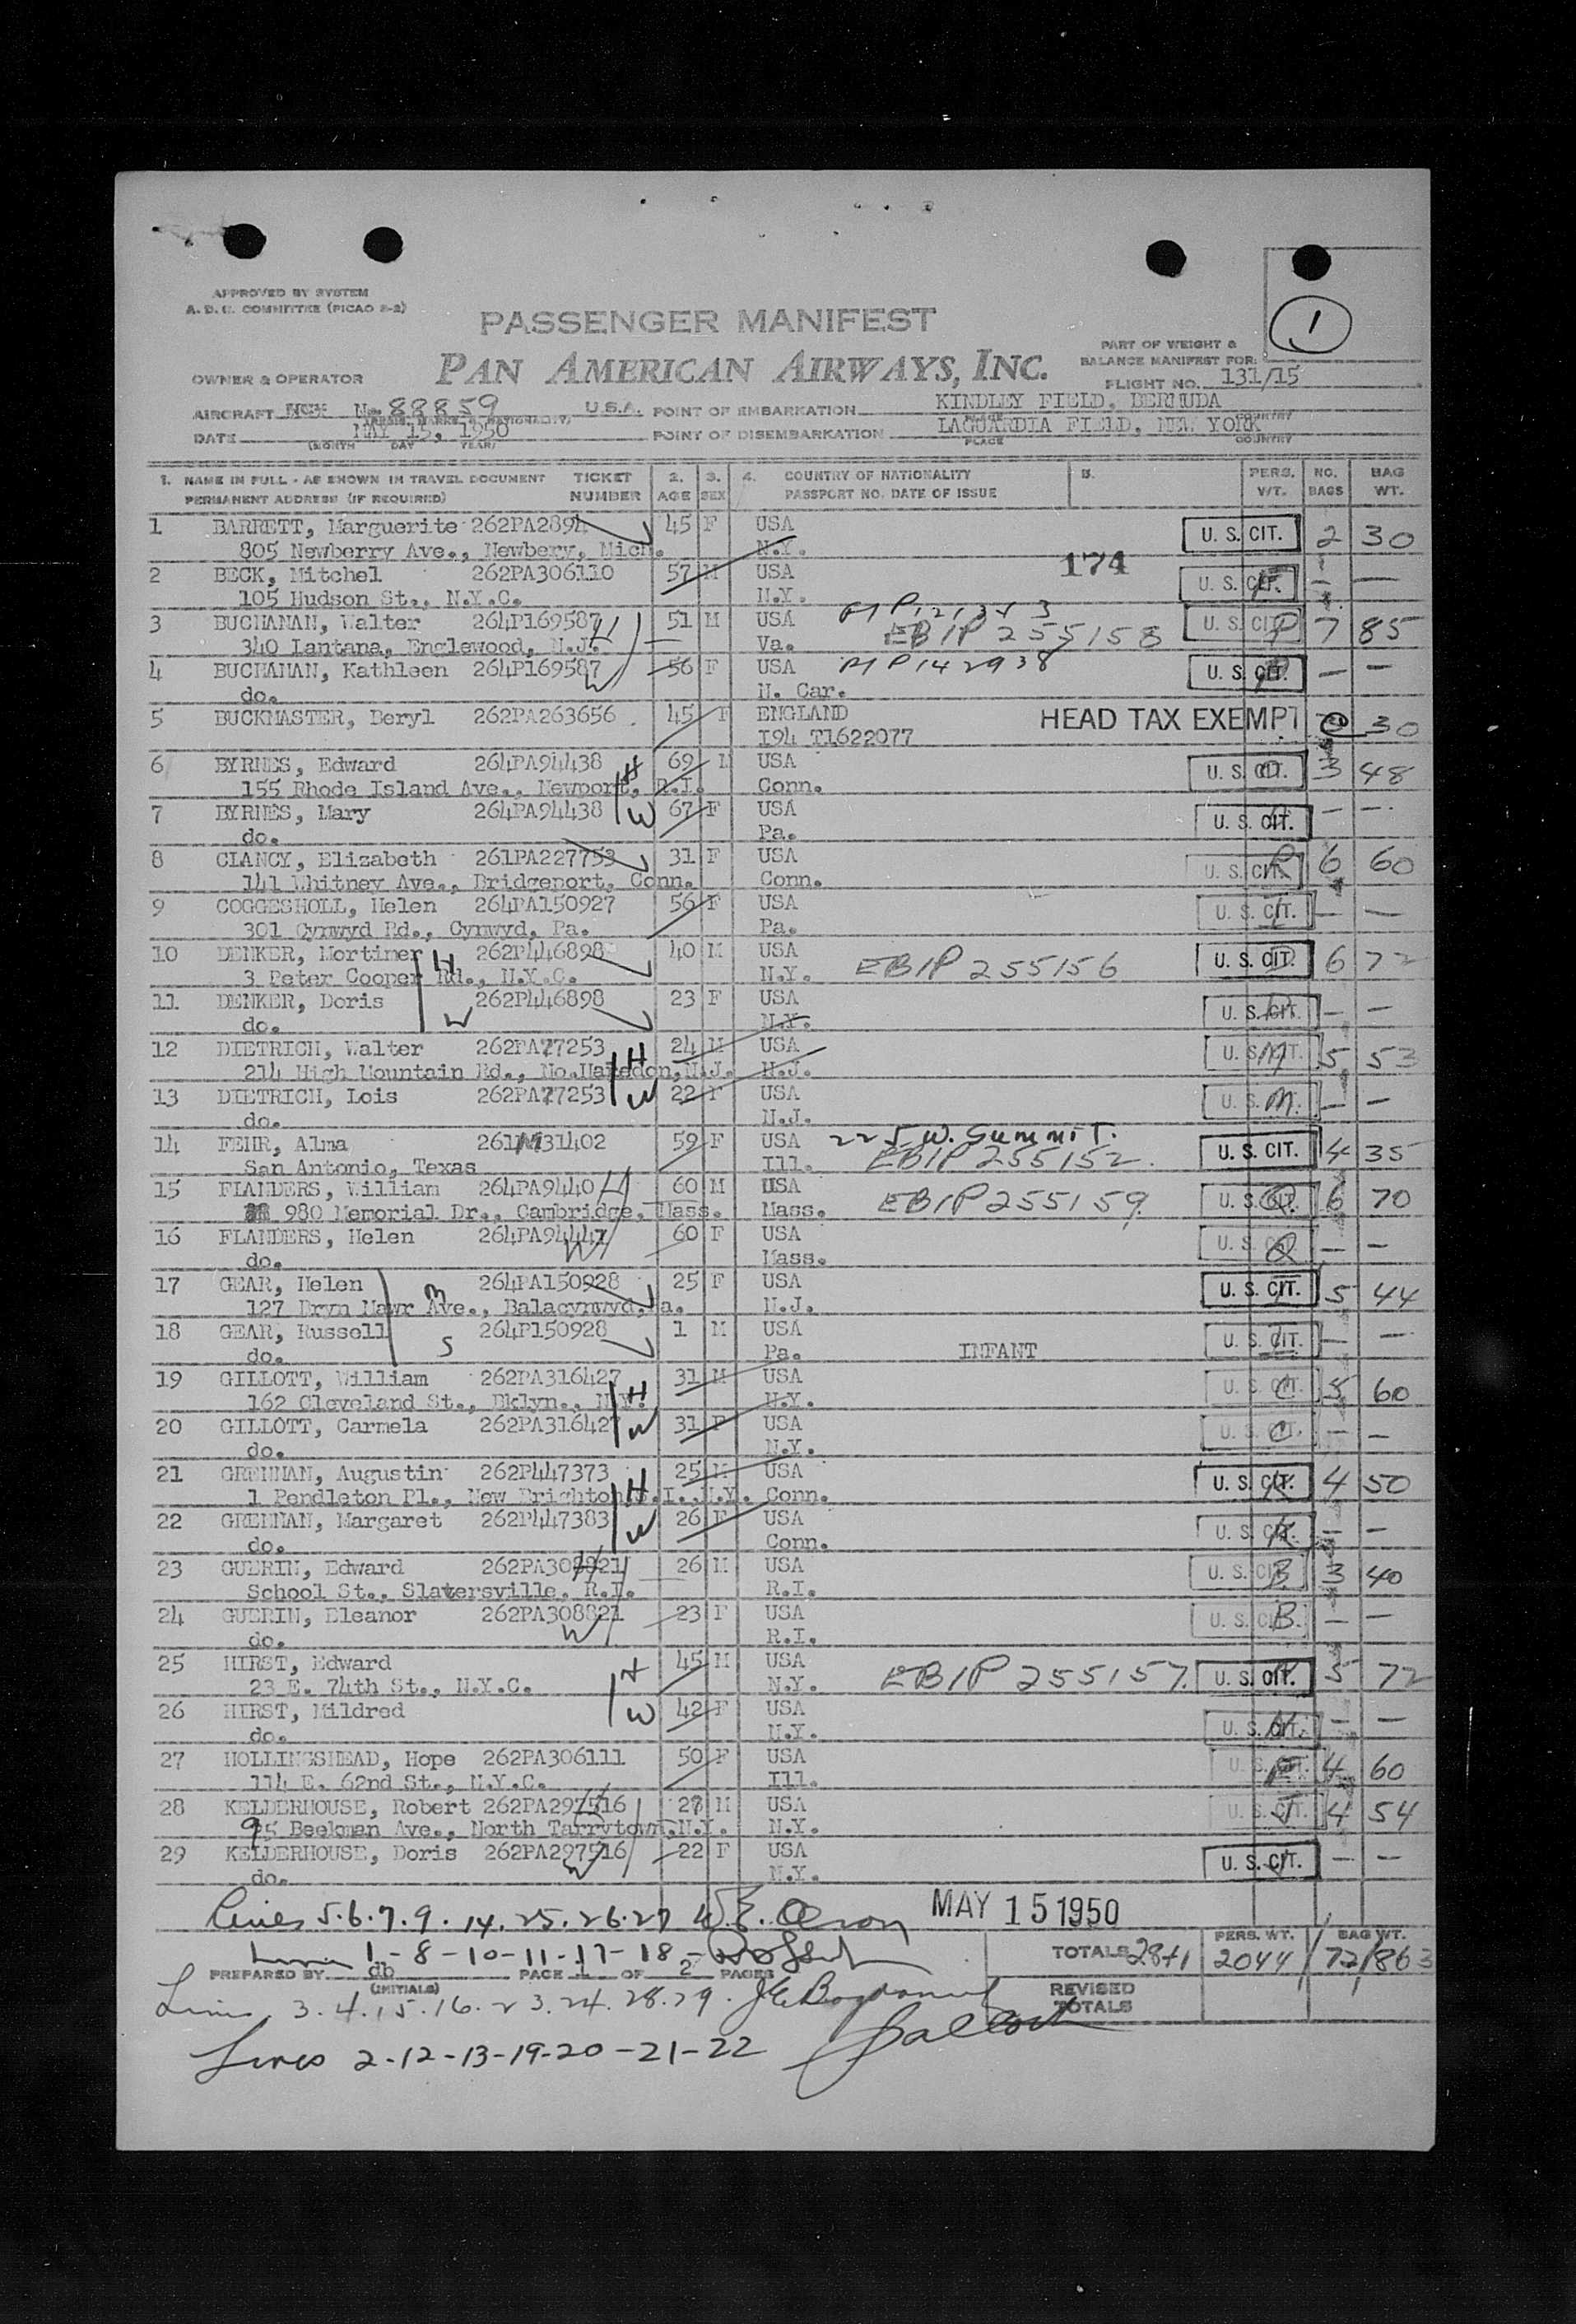 APPROVED BY SYSTEM
A. D. C. COMMITTEE (PICAO 2-2)
1
PASSENGER MANIFEST
PAN AMERICAN AIRWAYS, INC.
PART OF WEIGHT &
BALANCE MANIFEST FOR:
OWNER & OPERATOR
FLIGHT NO. 131/15
AIRCRAFT 88859 U.S.A. POINT OF EMBARKATION KINDLEY FIELD, BERMUDA
PLACE COUNTRY
DATE MAY 15, 1950 POINT OF DISEMBARKATION LAGUARDIA FIELD, NEW YORK
(MONTH DAY YEAR) PLACE COUNTRY
1. NAME IN FULL - AS SHOWN IN TRAVEL DOCUMENT TICKET 2. 3. 4. COUNTRY OF NATIONALITY 5. PERS. NO. BAG
PERMANENT ADDRESS (IF REQUIRED) NUMBER AGE SEX PASSPORT NO. DATE OF ISSUE WT. BAGS WT.
1 BARRETT, Marguerite 262PA289 45 F USA U. S. CIT. 2 30
805 Newberry Ave., Newbery, Mich. N.Y.
174
2 BECK, Mitchel 262PA306110 57 M USA U. S. CIT. — —
105 Hudson St., N.Y.C. N.Y.
3 BUCHANAN, Walter 264P169587 H 51 M USA U. S. CIT. 7 85
340 Lantana, Englewood, N.J. Va. EBIP 255158
4 BUCHANAN, Kathleen 264P169587 W 56 F USA U. S. CIT. — —
do. N. Car.
5 BUCKMASTER, Beryl 262PA263656 45 F ENGLAND HEAD TAX EXEMPT 30
I94 T1622077
6 BYRNES, Edward 264PA94438 H 69 M USA U. S. CIT. 3 48
155 Rhode Island Ave., Newport, R.I. Conn.
7 BYRNES, Mary 264PA94438 W 67 F USA U. S. CIT. — —
do. Pa.
8 CLANCY, Elizabeth 261PA227753 31 F USA U. S. CIT. 6 60
141 Whitney Ave., Bridgeport, Conn. Conn.
9 COGGESHOLL, Helen 264PA150927 56 F USA U. S. CIT. — —
301 Cynwyd Rd., Cynwyd, Pa. Pa.
10 DENKER, Mortimer H 262P446898 40 M USA U. S. CIT. 6 72
3 Peter Cooper Rd., N.Y.C. N.Y. EBIP 255156
11 DENKER, Doris W 262P446898 23 F USA U. S. CIT. — —
do. N.Y.
12 DIETRICH, Walter 262PA77253 H 24 M USA U. S. CIT. 5 53
214 High Mountain Rd., No.Haledon, N.J. N.J.
13 DIETRICH, Lois 262PA77253 W 22 F USA U. S. CIT. — —
do. N.J.
14 FEHR, Alma 59 F USA 225 W. Summit. U. S. CIT. 4 35
San Antonio, Texas Ill. EBIP 255152
15 FLANDERS, William 264PA9440 H 60 M USA U. S. CIT. 6 70
980 Memorial Dr., Cambridge, Mass. Mass. EBIP 255159
16 FLANDERS, Helen 264PA94441 W 60 F USA U. S. CIT. — —
do. Mass.
17 GEAR, Helen M 264PA150928 25 F USA U. S. CIT. 5 44
127 Bryn Mawr Ave., Balacynwyd, a. N.J.
18 GEAR, Russell S 264P150928 1 M USA U. S. CIT. — —
do. Pa. INFANT
19 GILLOTT, William 262PA316427 H 31 M USA U. S. CIT. 5 60
162 Cleveland St., Bklyn., N.Y. N.Y.
20 GILLOTT, Carmela 262PA316427 W 31 F USA U. S. CIT. — —
do. N.Y.
21 GRENNAN, Augustin 262P447373 H 25 M USA U. S. CIT. 4 50
1 Pendleton Pl., New Brighton, S.I., N.Y. Conn.
22 GRENNAN, Margaret 262P447383 W 26 F USA U. S. CIT. — —
do. Conn.
23 GUERIN, Edward 262PA308821 H 26 M USA U. S. CIT. 3 40
School St., Slatersville, R.I. R.I.
24 GUERIN, Eleanor 262PA308821 W 23 F USA U. S. CIT. — —
do. R.I.
25 HIRST, Edward H 45 M USA U. S. CIT. 5 72
23 E. 74th St., N.Y.C. N.Y. EBIP 255157
26 HIRST, Mildred W 42 F USA U. S. CIT. — —
do. N.Y.
27 HOLLINGSHEAD, Hope 262PA306111 50 F USA U. S. CIT. 4 60
114 E. 62nd St., N.Y.C. Ill.
28 KELDERHOUSE, Robert 262PA297516 H 28 M USA U. S. CIT. 4 54
95 Beekman Ave., North Tarrytown, N.Y. N.Y.
29 KELDERHOUSE, Doris 262PA297516 W 22 F USA U. S. CIT. — —
do. N.Y.
Lines 5.6.7.9.14.25.26.27 W.E. Olson MAY 15 1950
Lines 1-8-10-11-17-18-
PREPARED BY db PAGE 1 OF 2 PAGES
(INITIALS)
TOTALS 28+1 PERS. WT. 2044 72 BAG WT. 863
REVISED TOTALS
Lines 3.4.15.16.23.24.28.29.
Lines 2-12-13-19-20-21-22